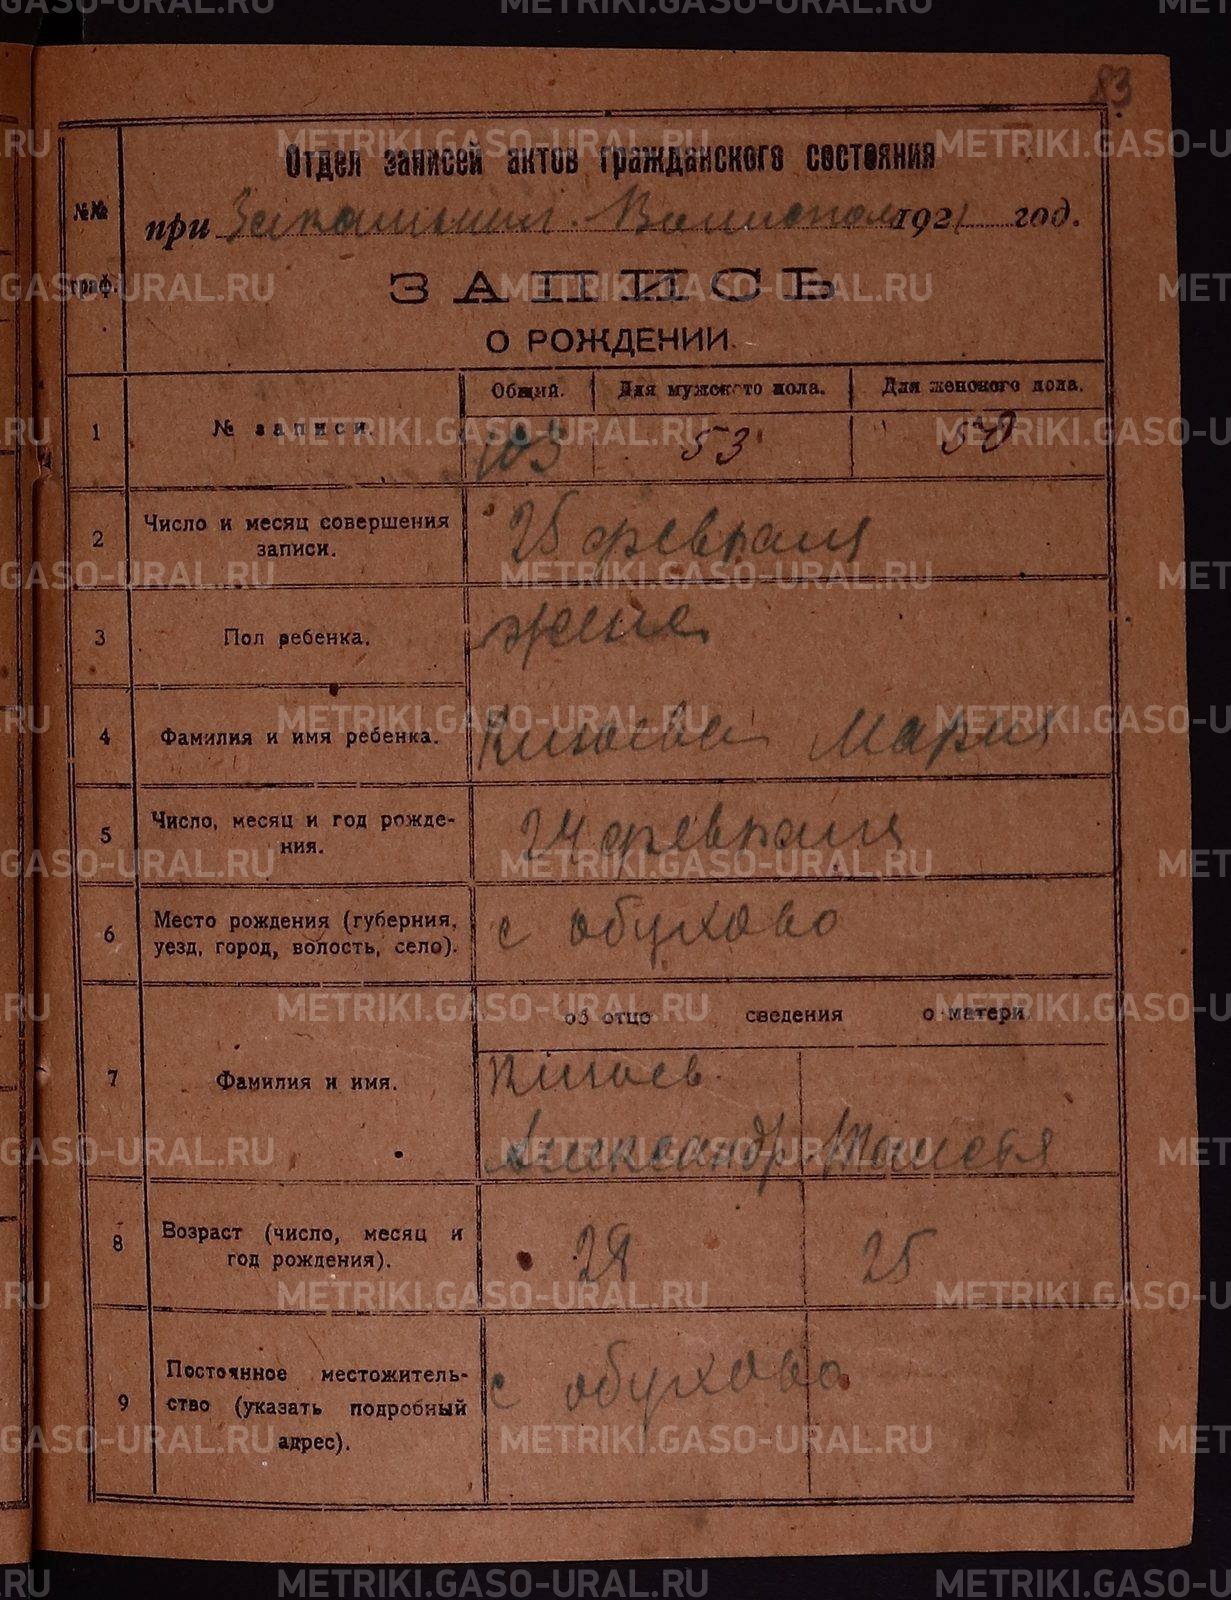 83
Отдел записей актов гражданского состояния
№№ граф.
при 1921 год.
ЗАПИСЬ
О РОЖДЕНИИ.
1 № записи.
Общий. Для мужского пола. Для женского пола.
103 53 50
2 Число и месяц совершения записи.
25 февраля
3 Пол ребенка.
жен
4 Фамилия и имя ребенка.
Мария
5 Число, месяц и год рождения.
24 февраля
6 Место рождения (губерния, уезд, город, волость, село).
с обухово
об отце сведения о матери
7 Фамилия и имя.
Александр
8 Возраст (число, месяц и год рождения).
25
9 Постоянное местожительство (указать подробный адрес).
с обухово
METRIKI.GASO-URAL.RU